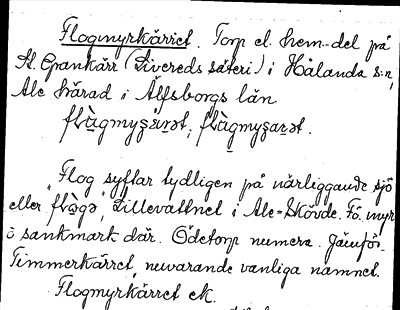 Flogmyrkärret. Torp el. hem.-del på
St. Grankärr (Livereds säteri) i Hålanda s:n,
Ale härad i Älfsborgs län.
"Flog syftar tydligen på närliggande sjö
eller Lillevattnet i Ale-Skövde. Fö. myr
o sankmark där. Ödetorp numera. Jämför.
Timmerkärret, nuvarande vanliga namnet.
Flogmyrkärret ek.